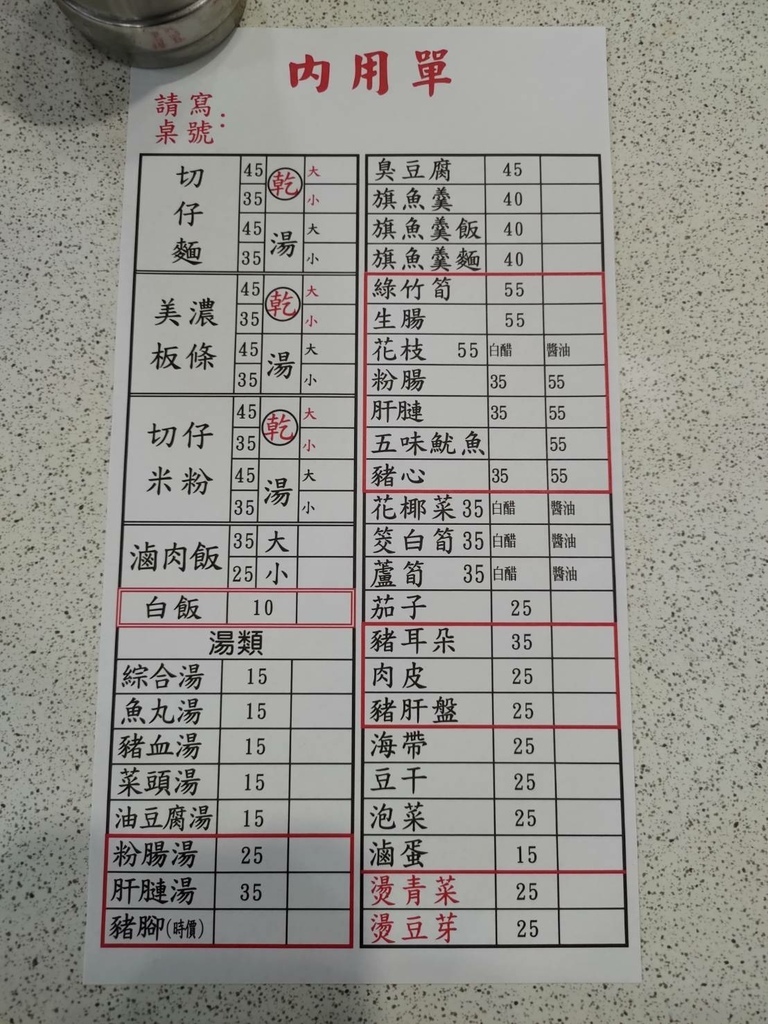 內用單
請寫
桌號：
切仔麵
45 乾 大
35 小
45 湯 大
35 小
美濃板條
45 乾 大
35 小
45 湯 大
35 小
切仔米粉
45 乾 大
35 小
45 湯 大
35 小
滷肉飯
35 大
25 小
白飯 10
湯類
綜合湯 15
魚丸湯 15
豬血湯 15
菜頭湯 15
油豆腐湯 15
粉腸湯 25
肝膧湯 35
豬腳(時價)
臭豆腐 45
旗魚羹 40
旗魚羹飯 40
旗魚羹麵 40
綠竹筍 55
生腸 55
花枝 55 白醋 醬油
粉腸 35 55
肝膧 35 55
五味魷魚 55
豬心 35 55
花椰菜 35 白醋 醬油
筊白筍 35 白醋 醬油
蘆筍 35 白醋 醬油
茄子 25
豬耳朵 35
肉皮 25
豬肝盤 25
海帶 25
豆干 25
泡菜 25
滷蛋 15
燙青菜 25
燙豆芽 25